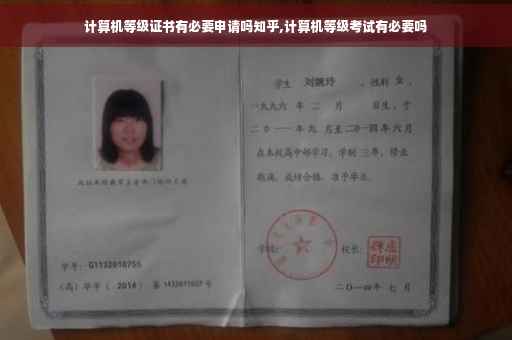 计算机等级证书有必要申请吗知乎,计算机等级考试有必要吗
学生 刘婉玲 ，性别 女 ，
一九九六 年 二 月 日生，于
二〇一一年九 月至二〇一四年 六 月
在本校高中部学习，学制 三年，修业
期满，成绩合格，准予毕业。
学校： 校长：
学号：G1132010755
（高）毕字（ 2014 ）第 1432011027 号
二〇一四年 七 月